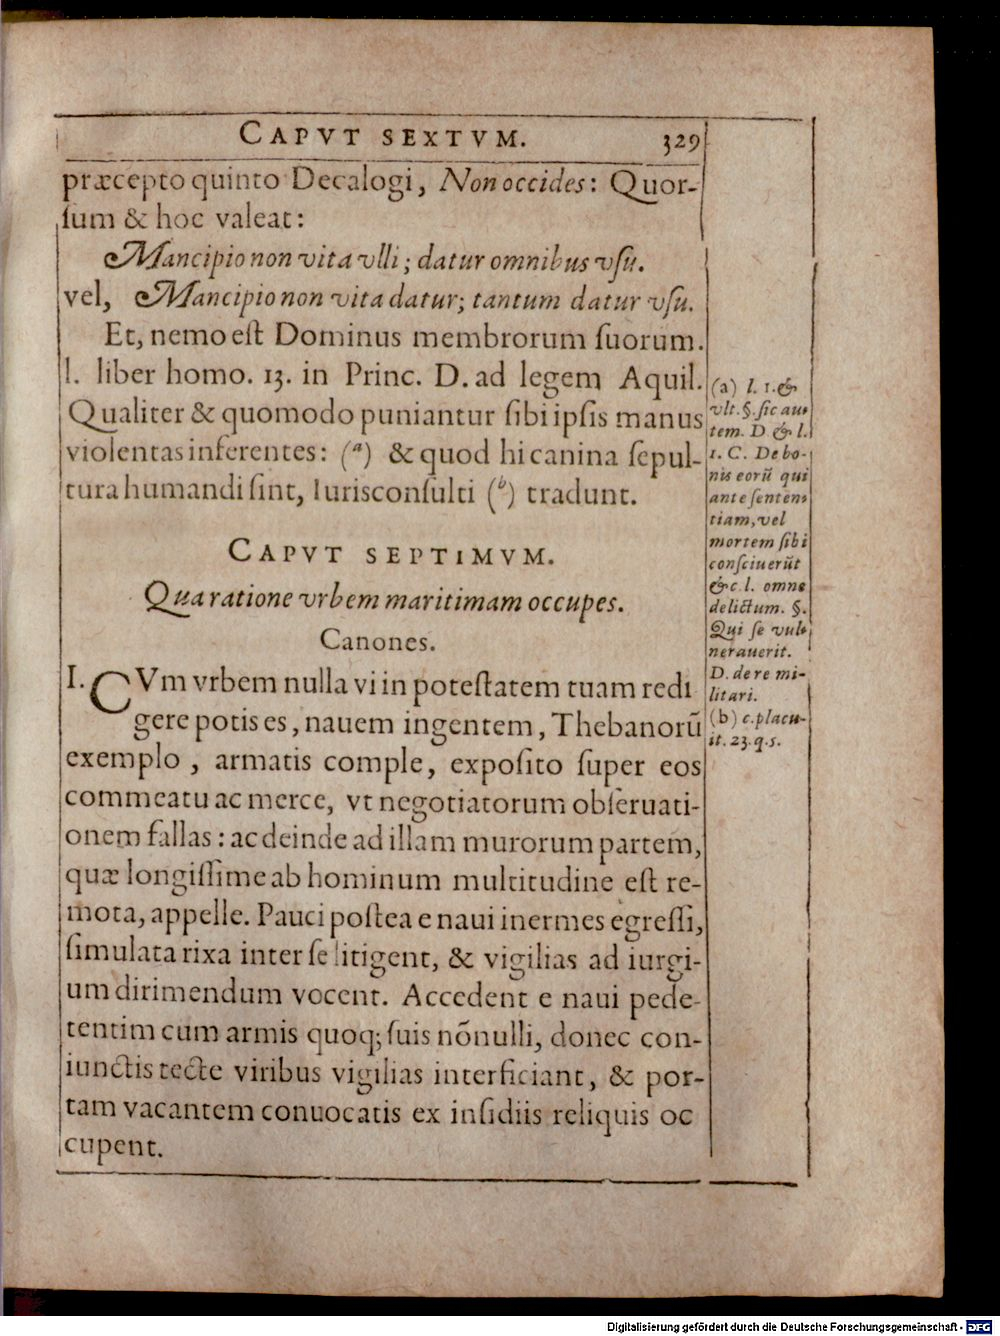 CAPVT SEXTVM. 329
præcepto quinto Decalogi, Non occides: Quor-
ſum & hoc valeat:
Mancipio non vita vlli; datur omnibus vſu.
vel, Mancipio non vita datur; tantum datur vſu.
Et, nemo eſt Dominus membrorum ſuorum.
l. liber homo. 13. in Princ. D. ad legem Aquil.
Qualiter & quomodo puniantur ſibi ipſis manus
violentas inferentes: (a) & quod hi canina ſepul-
tura humandi ſint, Iurisconſulti (b) tradunt.
CAPVT SEPTIMVM.
Qua ratione vrbem maritimam occupes.
Canones.
I. CVm vrbem nulla vi in poteſtatem tuam redi
gere potis es, nauem ingentem, Thebanorū
exemplo, armatis comple, expoſito ſuper eos
commeatu ac merce, vt negotiatorum obſeruati-
onem fallas: ac deinde ad illam murorum partem,
quæ longiſſime ab hominum multitudine eſt re-
mota, appelle. Pauci poſtea e naui inermes egreſſi,
ſimulata rixa inter ſe litigent, & vigilias ad iurgi-
um dirimendum vocent. Accedent e naui pede-
tentim cum armis quoq; ſuis nōnulli, donec con-
iunctis tecte viribus vigilias interficiant, & por-
tam vacantem conuocatis ex inſidiis reliquis oc
cupent.
(a) l. 1. &
vlt. §. ſic au-
tem. D & l.
1. C. De bo-
nis eorū qui
ante ſenten-
tiam, vel
mortem ſibi
conſciuerūt
& c l. omne
delictum. §.
Qui ſe vul-
nerauerit.
D. de re mi-
litari.
(b) c. placu-
it. 23. q. 5.
Digitalisierung gefördert durch die Deutsche Forschungsgemeinschaft - DFG